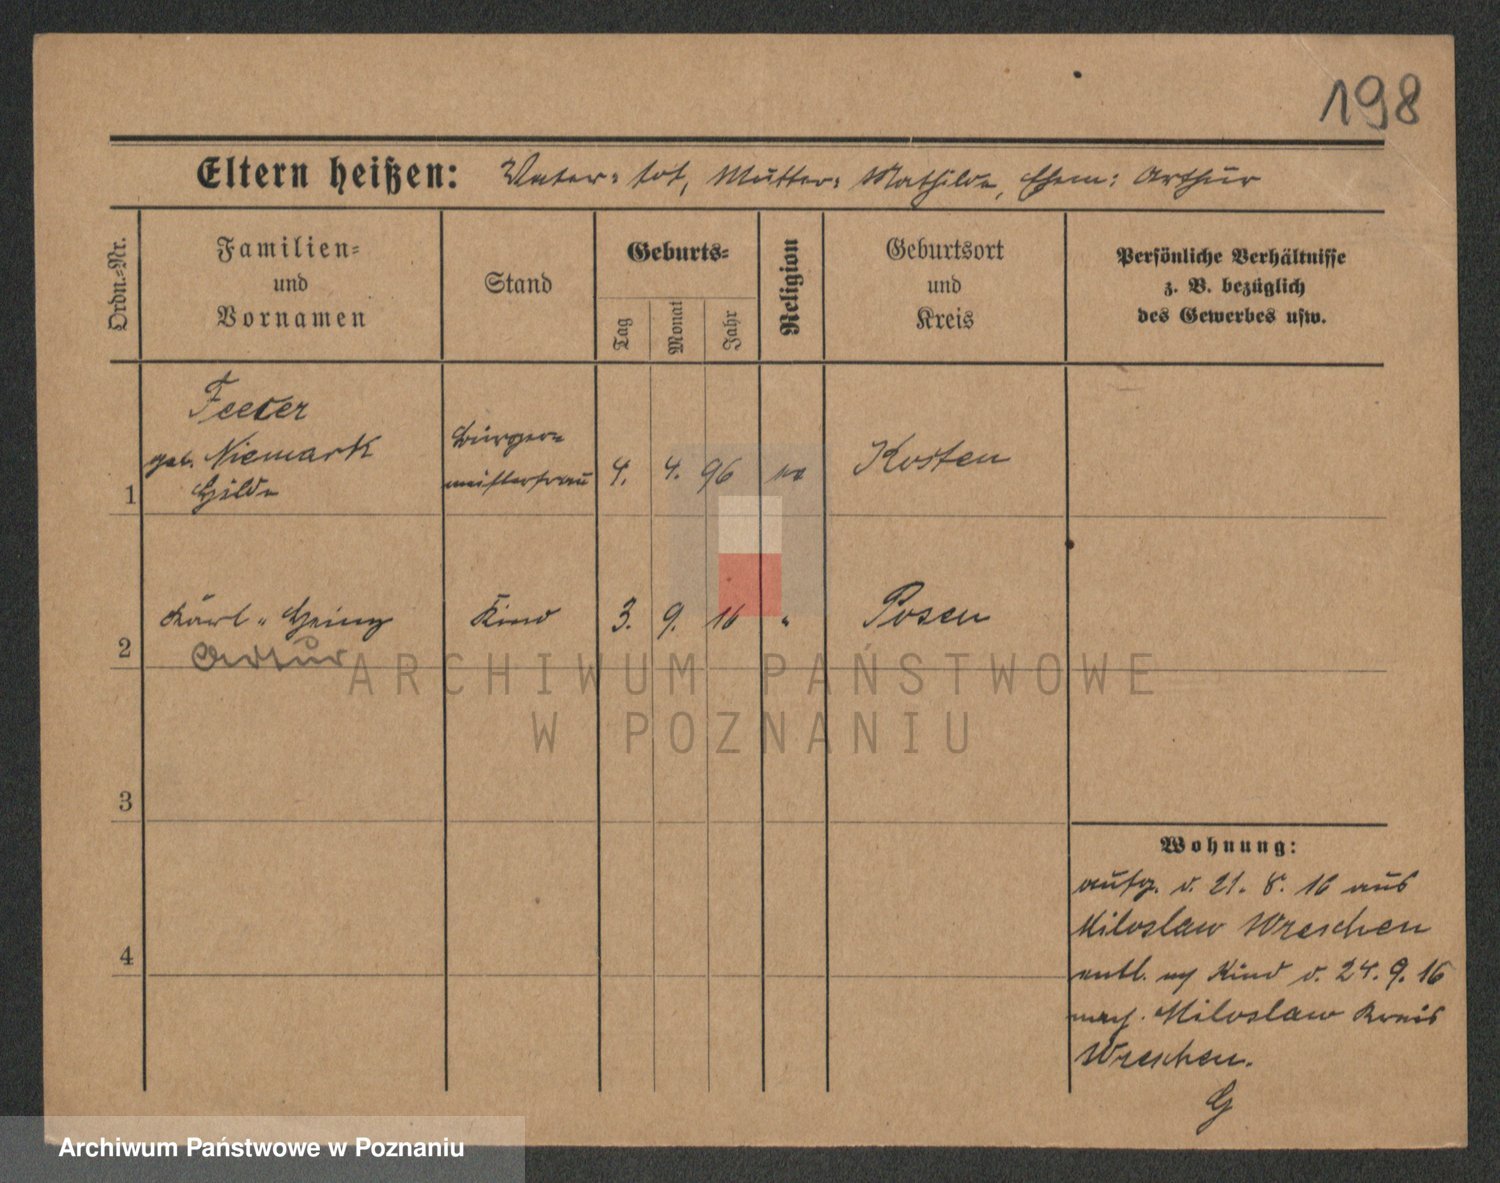 198
Eltern heißen: Vater: tot, Mutter: Mathilde, Ehem: Arthur
Ordn.-Nr.
Familien-
und
Vornamen
Stand
Geburts-
Tag
Monat
Jahr
Religion
Geburtsort
und
Kreis
Persönliche Verhältnisse
z. B. bezüglich
des Gewerbes usw.
1
geb. Niemark
Hilde
Bürger-
meisterfrau
4. 4. 96
Kosten
2
Karl-Heinz
Artur
Kind
3. 9. 16
"
Posen
3
4
Wohnung:
aufg. v. 21. 8. 16 aus
Miloslaw Wreschen
entl. Kind v. 24. 9. 16
nach Miloslaw Kreis
Wreschen.
G
ARCHIWUM PAŃSTWOWE
W POZNANIU
Archiwum Państwowe w Poznaniu